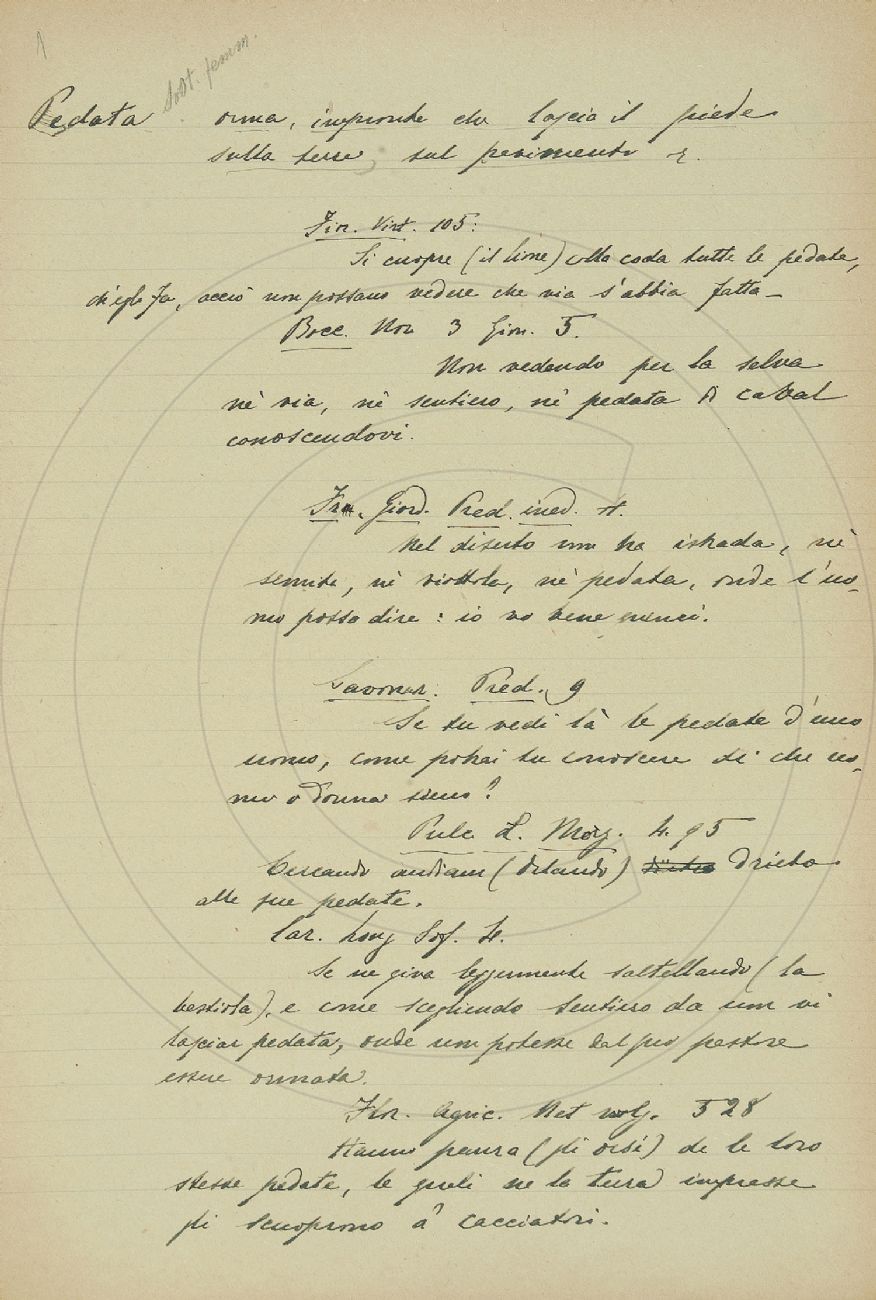 1
Sost. femm.
Pedata orma, impronta che lascia il piede
sulla terra, sul pavimento
Fior. Virt. 105:
Si cuopre (il lione) colla coda tutte le pedate,
ch'egli fa, acciò non possano vedere che via s'abbia fatta_
Bocc. Nov 3 Gior. 5.
Non vedendo per la selva
nè via, nè sentiero, nè pedata di caval
conoscendovi.
Fra. Giord. Pred. ined. H.
Nel diserto non ha istrada, nè
semita, nè viottola, nè pedata, onde l'uo-
mo possa dire: io vo bene quinci.
Savonar. Pred. 9
Se tu vedi là le pedate d'uno
uomo, come potrai tu conoscere di che uo-
mo o donna sieno?
Pulc L. Morg. 4. 95
Cercando andiam (Orlando) drieto
alle sue pedate.
Car. Long Sof. 4.
Se ne giva leggermente saltellando (la
bestiola), e come scegliendo sentiero da non vi
lasciar pedata, onde non potesse dal suo pastore
essere ormata.
Flor. Agric. Met volg. 328
Hanno paura (gli orsi) de le loro
stesse pedate, le quali ne la terra impresse
gli scuoprono a' cacciatori.